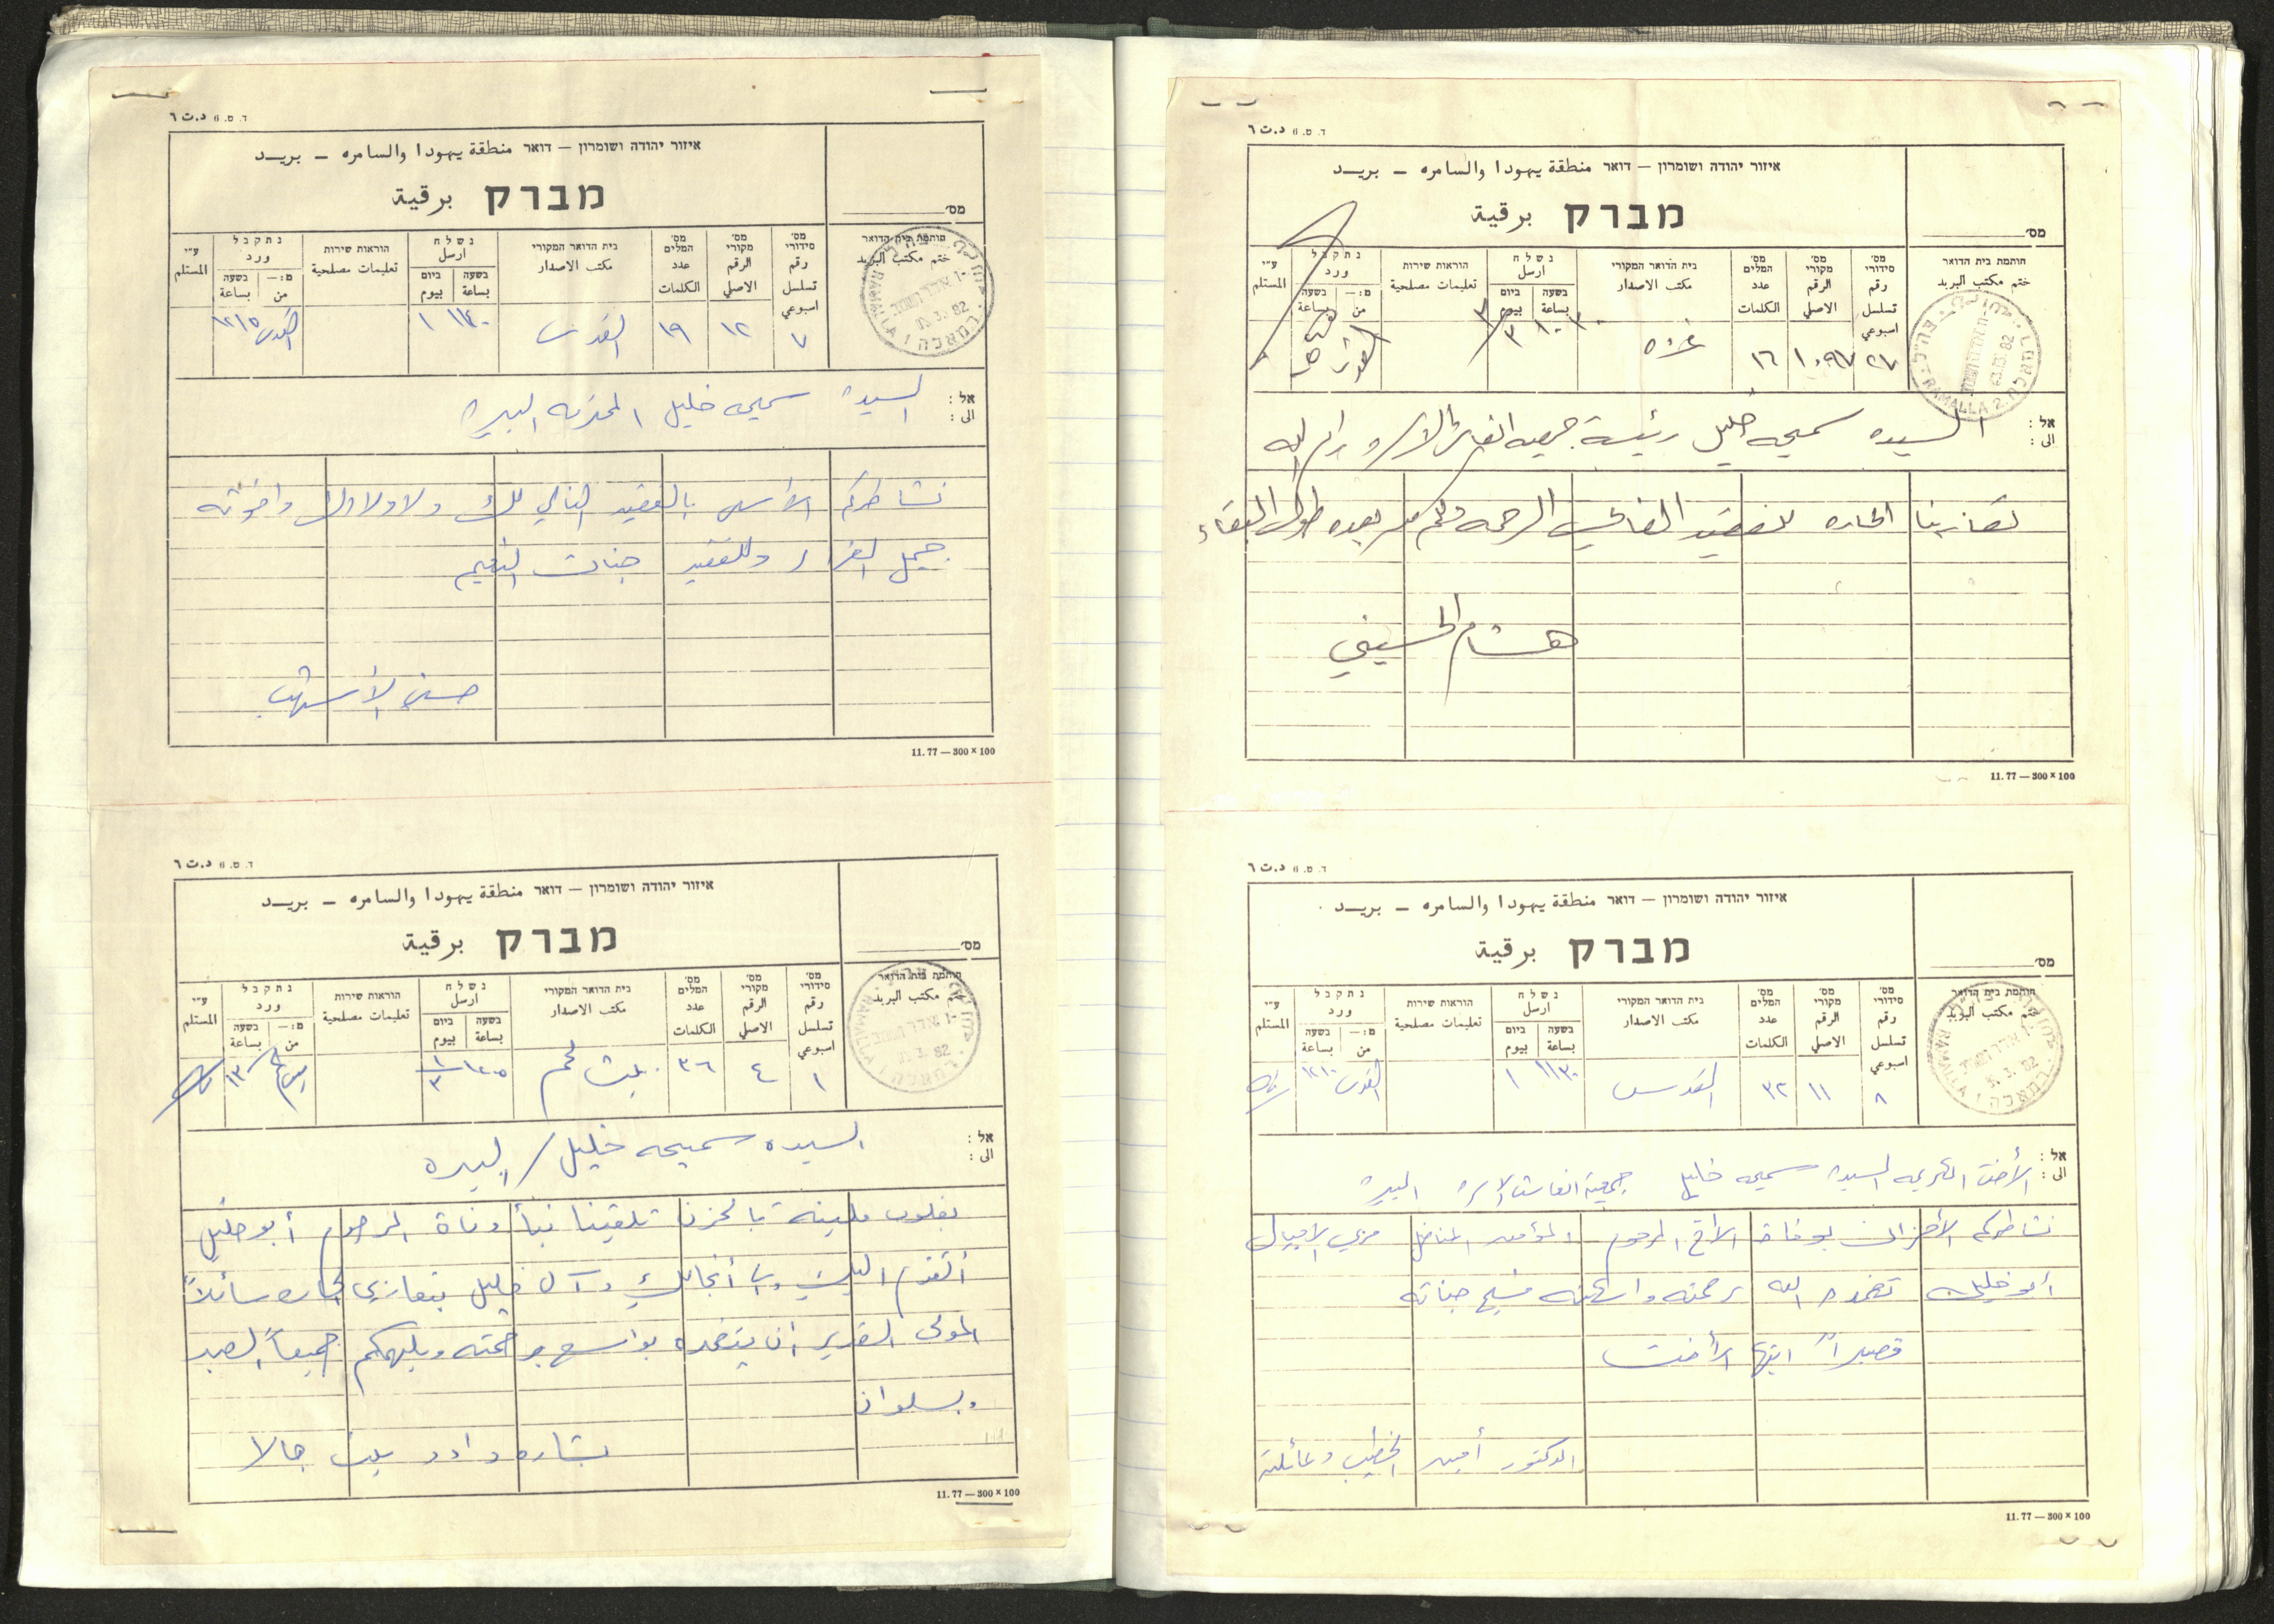 ד.ס. 6 د.ت ٦
איזור יהודה ושומרון — דואר منطقة يهودا والسامره — بريـــد
מברק برقية
מס׳
חותמת בית הדואר
ختم مكتب البريد
מס׳ סידורי رقم تسلسل اسبوعي
מס׳ מקורי الرقم الاصلي
מס׳ המלים عدد الكلمات
בית הדואר המקורי مكتب الاصدار
נשלח ارسل
בשעה بساعة
ביום بيوم
הוראות שירות تعليمات مصلحية
נתקבל ورد
מ: — من
בשעה بساعة
ע״י المستلم
٧ ١٢ ١٩ القدس ١١٤٠ ١ القدس ١٢١٥
אל :
الى :
السيدة سميحه خليل المحترمه البيرة
نشاطركم الأسى بالفقيد الغالي لك ولاولادك واخوته
جميل العزاء وللفقيد جنات النعيم
حسني الأشهب
11. 77 — 300 × 100
ד.ס. 6 د.ت ٦
איזור יהודה ושומרון — דואר منطقة يهودا والسامره — بريـــد
מברק برقية
מס׳
חותמת בית הדואר
ختم مكتب البريد
מס׳ סידורי رقم تسلسل اسبوعي
מס׳ מקורי الرقم الاصلي
מס׳ המלים عدد الكلمات
בית הדואר המקורי مكتب الاصدار
נשלח ارسل
בשעה بساعة
ביום بيوم
הוראות שירות تعليمات مصلحية
נתקבל ورد
מ: — من
בשעה بساعة
ע״י المستلم
١ ٤ ٣٦ بيت لحم ١/٣
אל :
الى :
السيده سميحه خليل / البيره
بقلوب مليئة بالحزن تلقينا نبأ وفاة المرحوم أبو خليل
أتقدم اليك والى أنجالك وآل خليل بتعازي الحاره سائلاً
المولى القدير ان يتغمده بواسع رحمته ويلهمكم جميعاً الصبر
والسلوان
بشاره داود بيت جالا
11. 77 — 300 × 100
ד.ס. 6 د.ت ٦
איזור יהודה ושומרון — דואר منطقة يهودا والسامره — بريـــد
מברק برقية
מס׳
חותמת בית הדואר
ختم مكتب البريد
RAMALLA 2
מס׳ סידורי رقم تسلسل اسبوعي
מס׳ מקורי الرقم الاصلي
מס׳ המלים عدد الكلمات
בית הדואר המקורי مكتب الاصدار
נשלח ارسل
בשעה بساعة
ביום بيوم
הוראות שירות تعليمات مصلحية
נתקבל ورد
מ: — من
בשעה بساعة
ע״י المستلم
٢٧ ١٠٩٧ ١٦ غزه
אל :
الى :
السيده سميحه خليل رئيسة جمعيه انعاش الاسره رام الله
تعازينا الحاره للفقيد الغالي الرحمه ولكم من بعده طول البقاء
هشام الحسيني
11. 77 — 300 × 100
ד.ס. 6 د.ت ٦
איזור יהודה ושומרון — דואר منطقة يهودا والسامره — بريـــد
מברק برقية
מס׳
חותמת בית הדואר
ختم مكتب البريد
מס׳ סידורי رقم تسلسل اسبوعي
מס׳ מקורי الرقم الاصلي
מס׳ המלים عدد الكلمات
בית הדואר המקורי مكتب الاصدار
נשלח ارسل
בשעה بساعة
ביום بيوم
הוראות שירות تعليمات مصلحية
נתקבל ورد
מ: — من
בשעה بساعة
ע״י المستلم
٨ ١١ ٣٢ القدس ١١٣٠ ١ القدس ١٢١٠
אל :
الى :
الأخت الكريمه السيدة سميحه خليل جمعية انعاش الاسرة البيرة
نشاطركم الأحزان بوفاة الأخ المرحوم المؤمن المناضل مربي الاجيال
أبو خليل تغمده الله برحمته واسكنه فسيح جناته
فصبراً ايتها الأخت
الدكتور أمين الخطيب وعائلته
11. 77 — 300 × 100